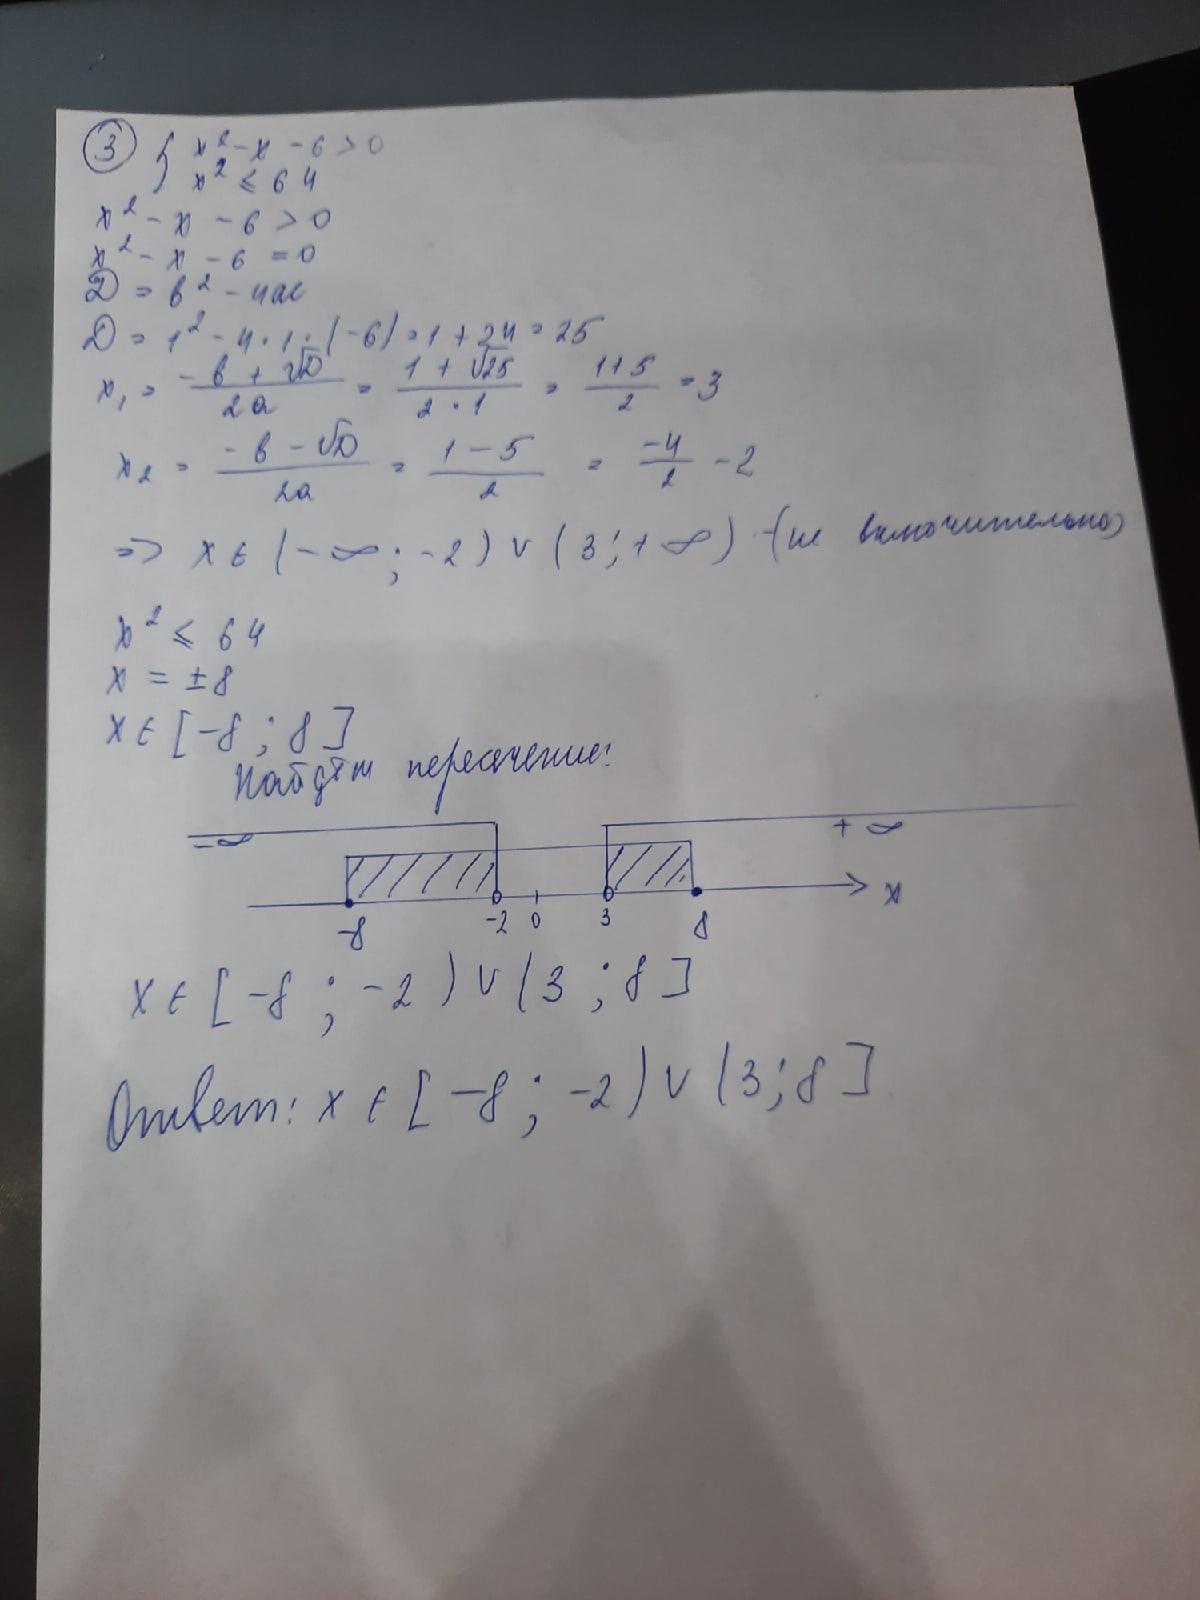 3 { x² - x - 6 > 0
x² ≤ 64
x² - x - 6 > 0
x² - x - 6 = 0
D = b² - 4ac
D = 1² - 4 · 1 · (-6) = 1 + 24 = 25
x₁ = (-b + √D)/2a = (1 + √25)/(2 · 1) = (1+5)/2 = 3
x₂ = (-b - √D)/2a = (1 - 5)/2 = -4/2 - 2
=> x ∈ (-∞; -2) ∨ (3; +∞) - (не включительно)
x² ≤ 64
x = ±8
x ∈ [-8; 8]
Найдём пересечение:
-∞ +∞
-8 -2 0 3 8 x
x ∈ [-8; -2) ∨ (3; 8]
Ответ: x ∈ [-8; -2) ∨ (3; 8]